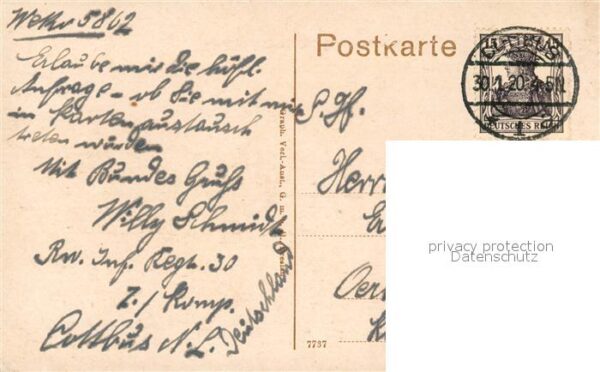 WeKo 5862
Erlaube mir die höfl.
Anfrage - ob Sie mit mir
in Kartenaustausch
treten würden
Mit Bundes Gruß
Willy Schmidt
Rw. Inf. Regt. 30
7./Komp.
Cottbus N.L. Deutschland
Postkarte
30.1.20.
DEUTSCHES REICH
S. H.
Herrn
Graph. Verl.-Anst., G. m.
7737
privacy protection
Datenschutz